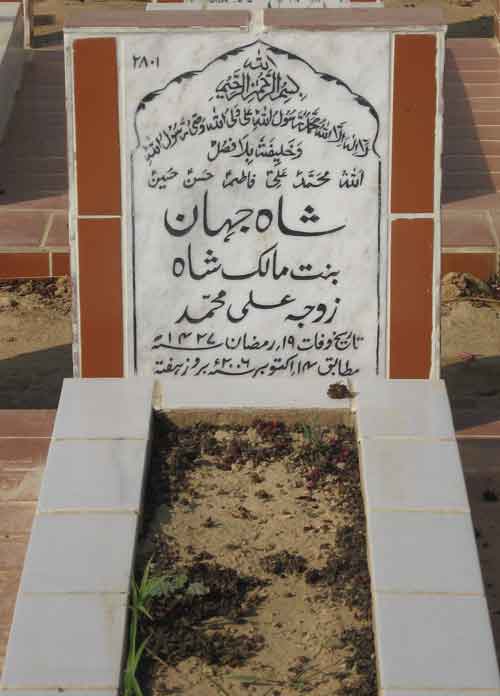 ۲۸۰۱
بسم اللہ الرحمن الرحیم
لا الہ الا اللہ محمد رسول اللہ علی ولی اللہ وصی رسول اللہ
وخلیفتہ بلا فصل
اللہ محمد علی فاطمہ حسن حسین
شاہ جہان
بنت مالک شاہ
زوجہ علی محمد
تاریخ وفات ۱۹؍ رمضان ۱۴۲۷ھ
مطابق ۱۴ اکتوبر ۲۰۰۶ء بروز ہفتہ